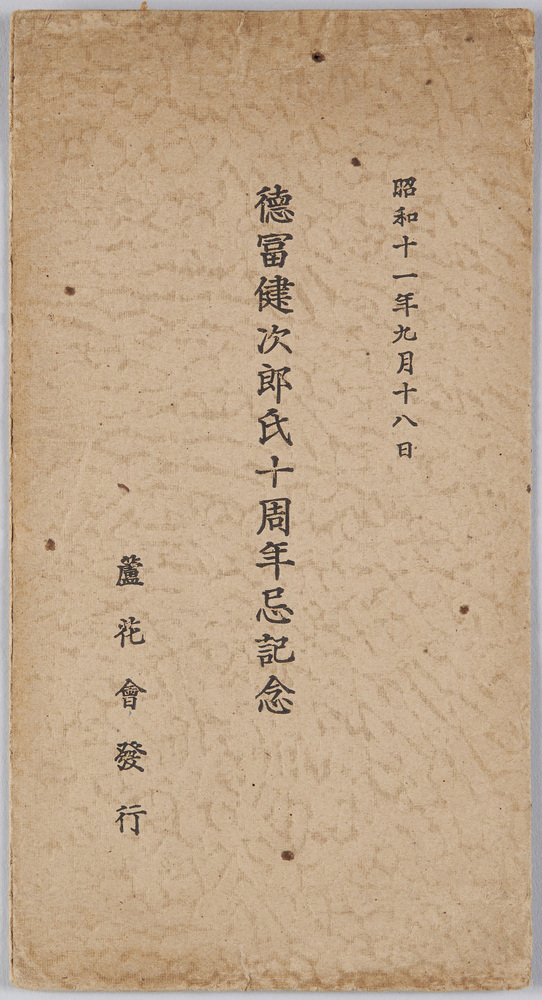 昭和十一年九月十八日
德冨健次郎氏十周年忌記念
蘆花會發行